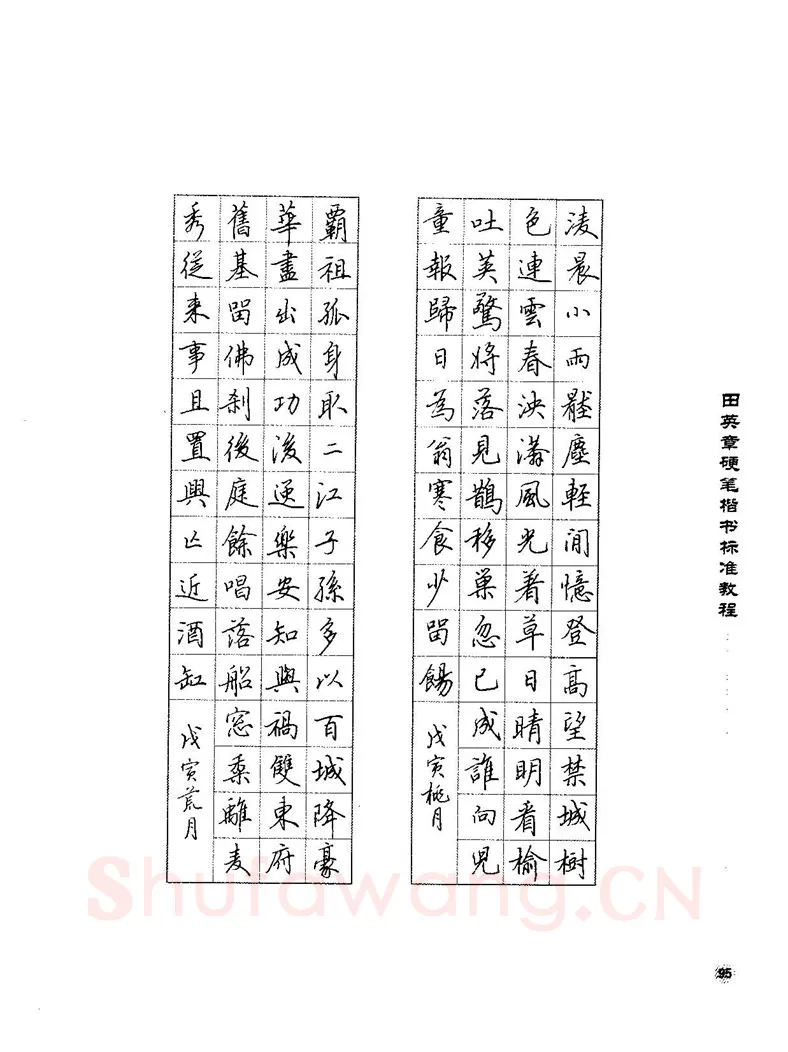 淩晨小雨壓塵輕閒憶登高望禁城樹
色連雲春泱漭風光着草日晴明看榆
吐莢驚將落見鵲移巢忽已成誰向兒
童報歸日為翁寒食少留餳
戊寅桃月
霸祖孤身取二江子孫多以百城降豪
華盡出成功後逸樂安知與禍雙東府
舊基留佛刹後庭餘唱落船窓黍離麦
秀從来事且置興亡近酒缸
戊寅荒月
田英章硬笔楷书标准教程
95
Shufawang.CN